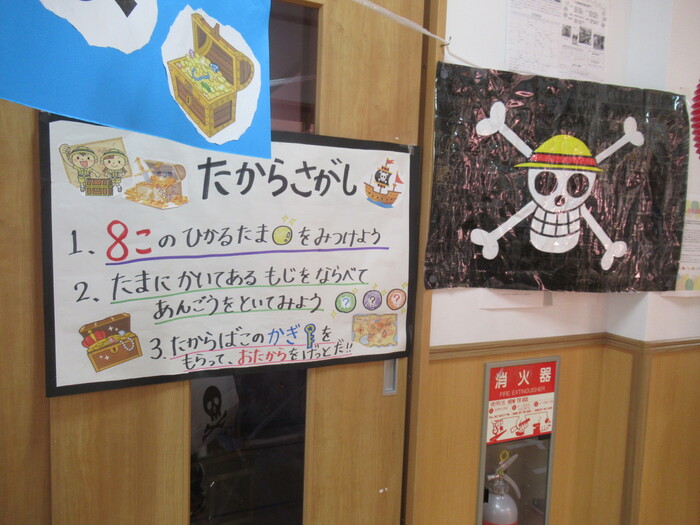 たからさがし
1. 8このひかるたまをみつけよう
2. たまにかいてあるもじをならべて
あんごうをといてみよう
? ? ?
3. たからばこのかぎを
もらって、おたからをげっとだ!!
消火器
FIRE EXTINGUISHER